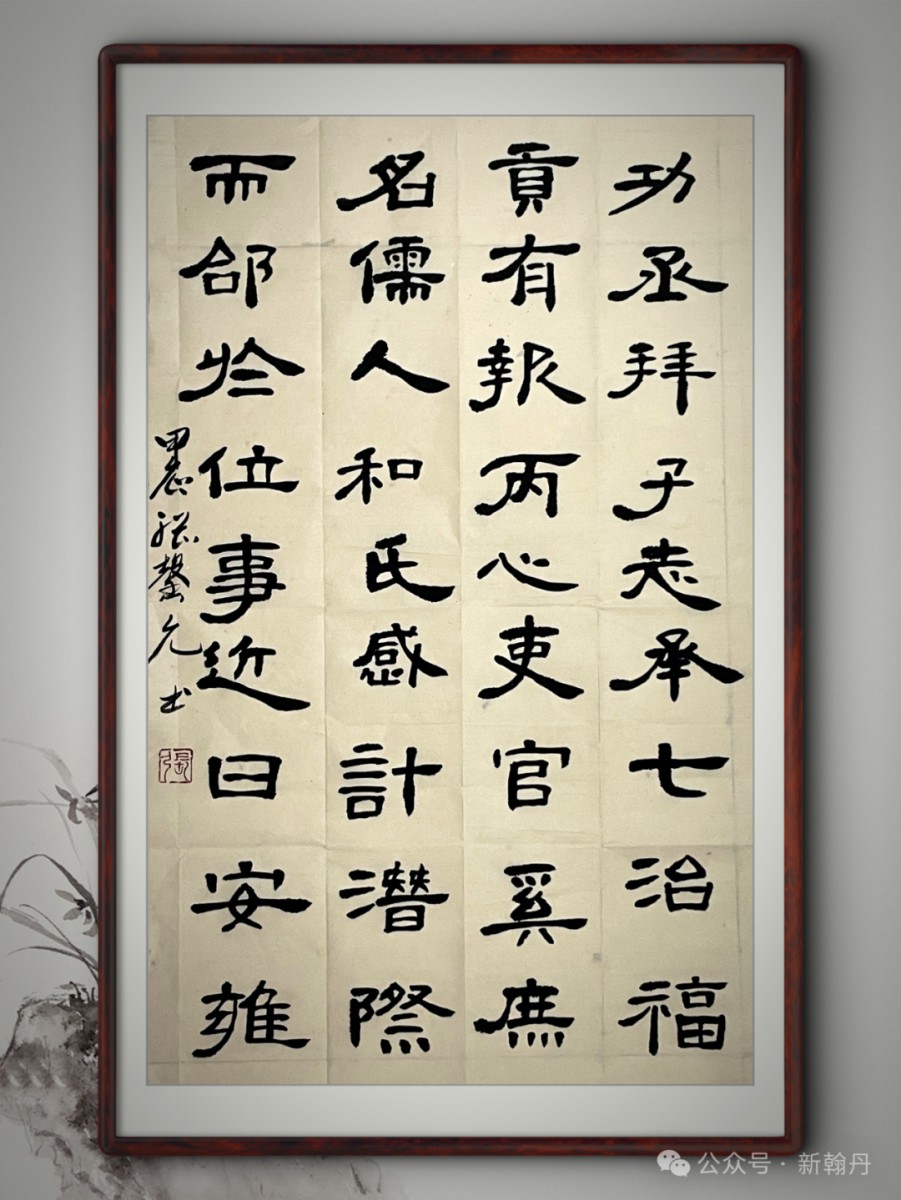 功丞拜子志承七治福
貢有報丙心吏官奚庶
名儒人和氏感計潛際
而郃於位事近曰安雍
甲辰
張
公众号·新翰丹